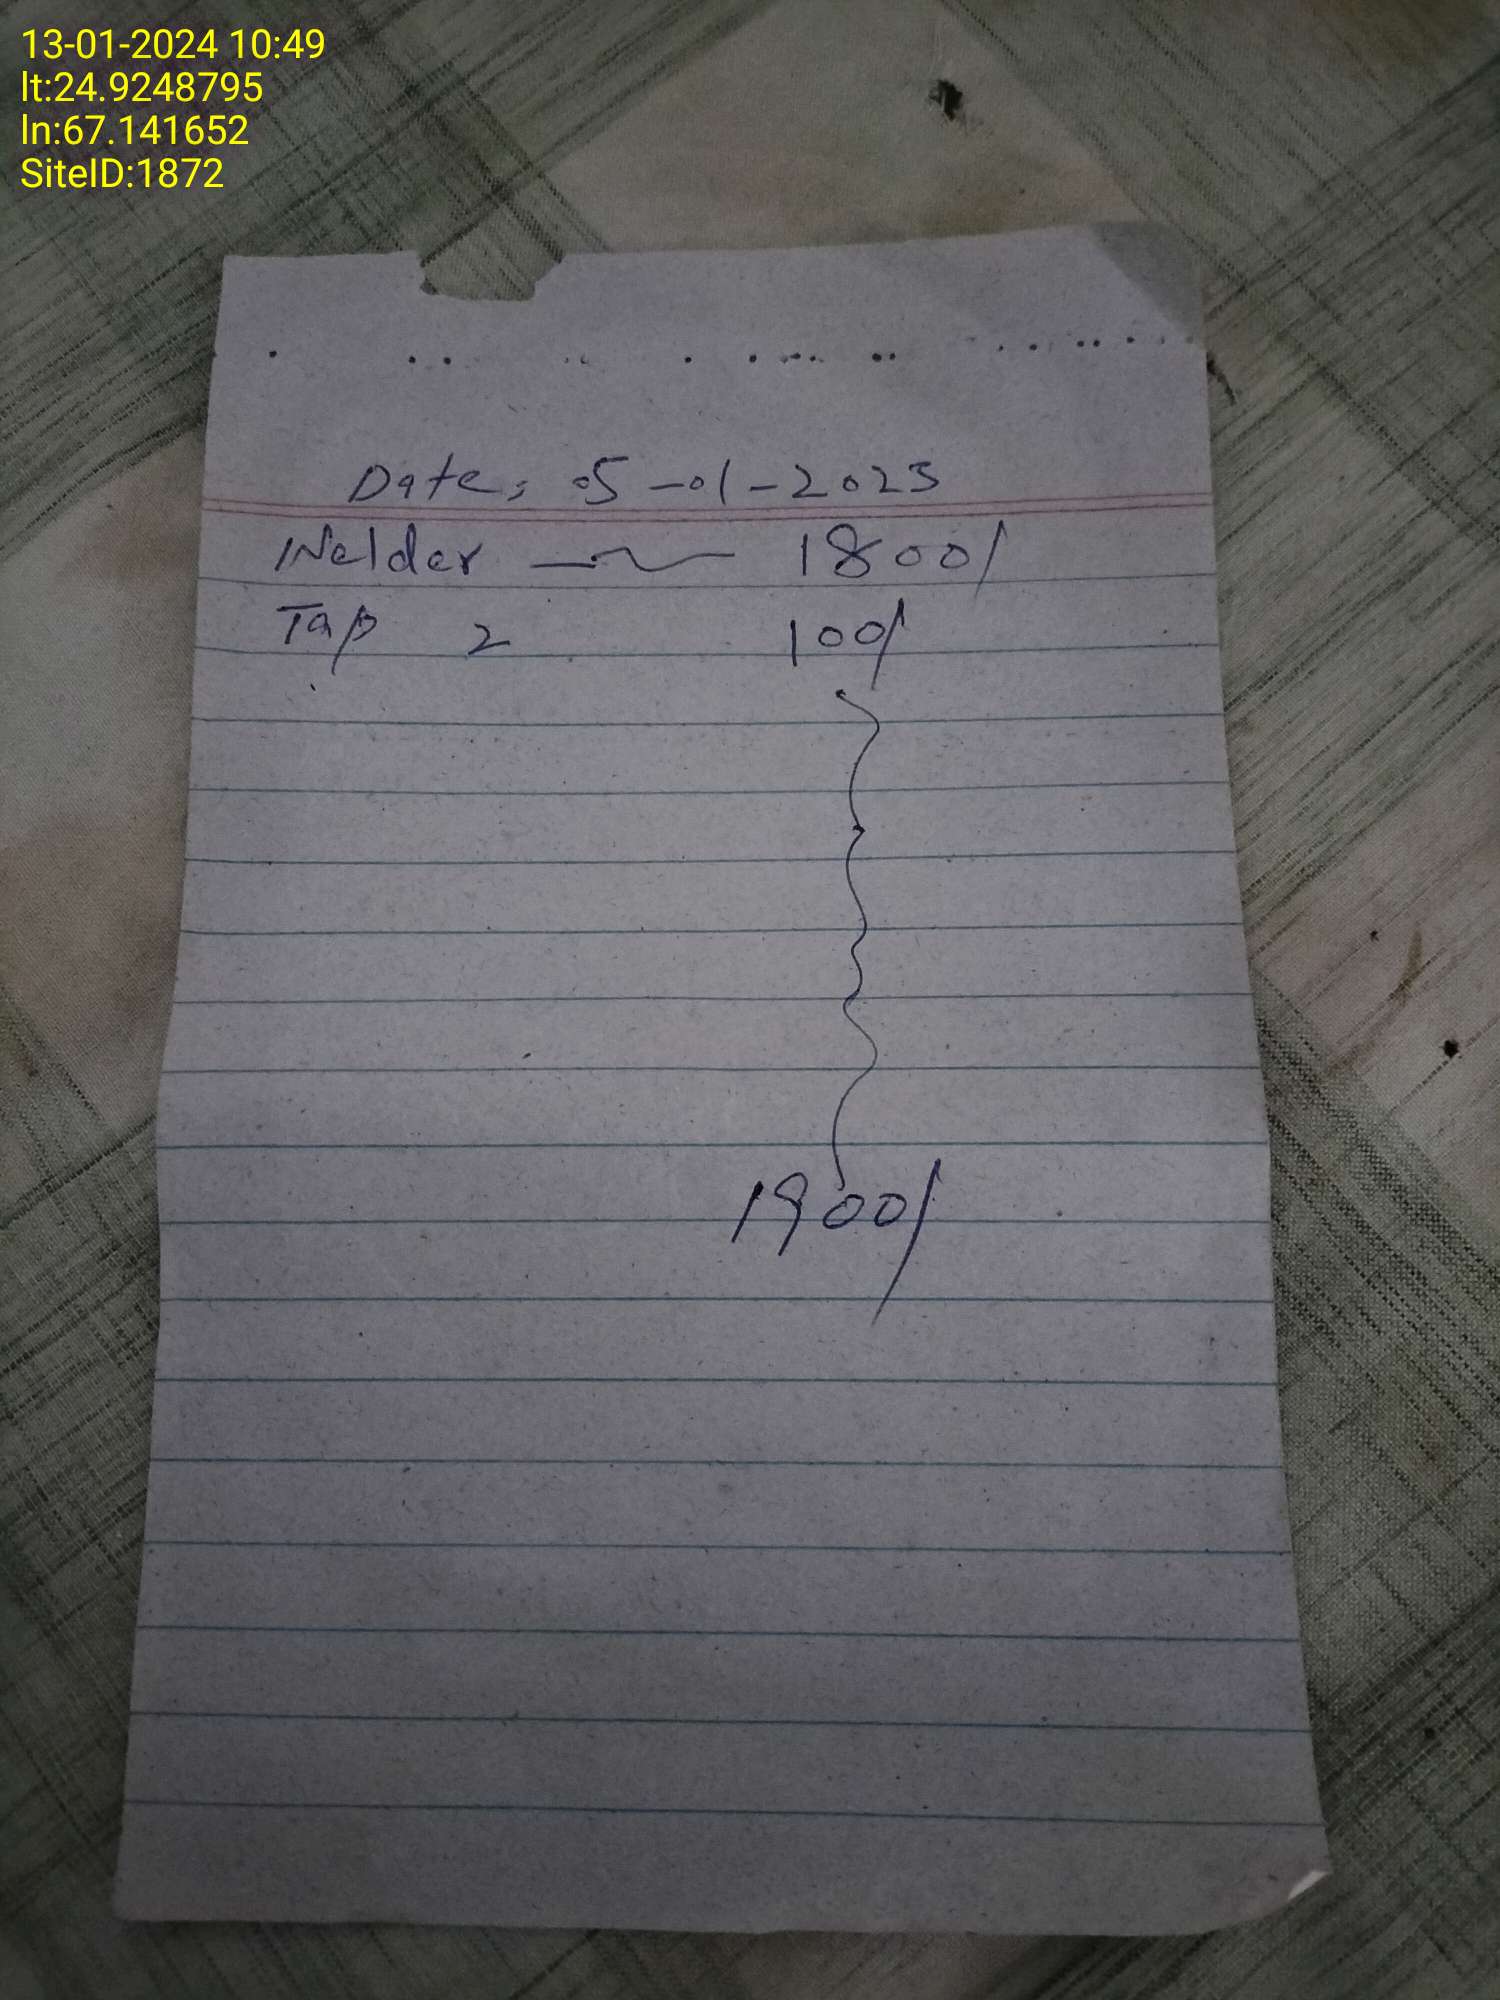 13-01-2024 10:49
lt:24.9248795
ln:67.141652
SiteID:1872
Date: 05-01-2023
Welder — 1800/
Tap 2 100/
1900/